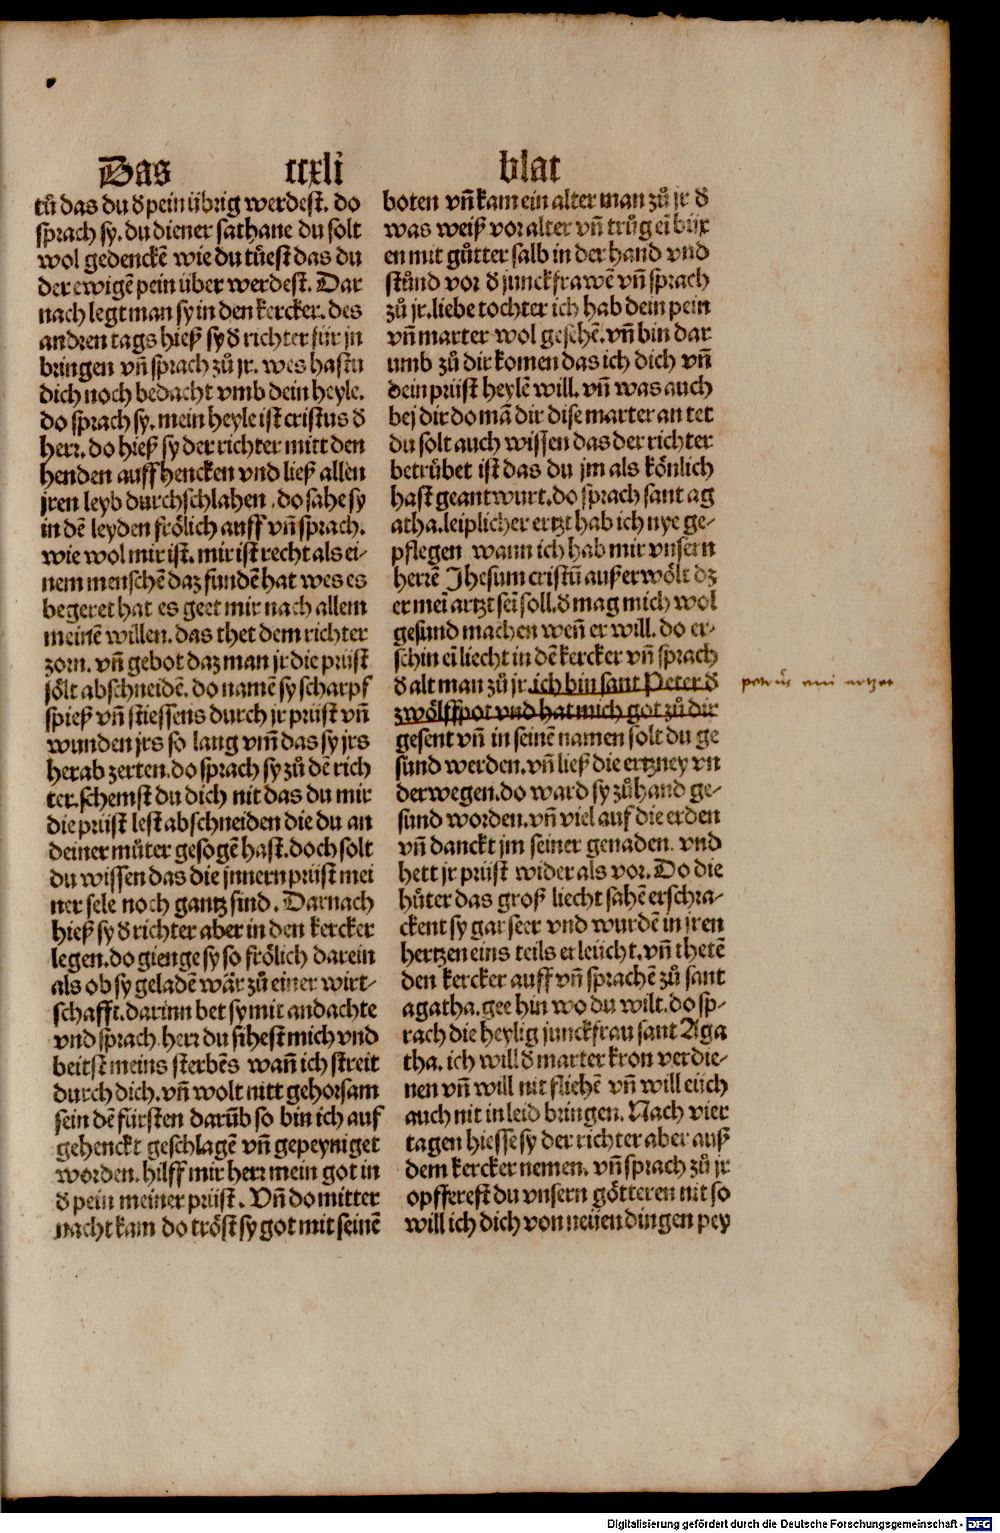 Das ccxli blat
tů das du đ pein übrig werdest. do
sprach sy. du diener sathane du solt
wol gedenckē wie du tüest das du
der ewigē pein über werdest. Dar
nach legt man sy in den kercker. des
andren tags hieß sy đ richter für jn
bringen vn̄ sprach zů jr. wes hastu
dich noch bedacht vmb dein heyle.
do sprach sy. mein heyle ist cristus đ
herr. do hieß sy der richter mitt den
henden auff hencken vnd ließ allen
jren leyb durchschlahen. do sahe sy
in dē leyden frölich auff vn̄ sprach.
wie wol mir ist. mir ist recht als ei-
nem menschē daz fundē hat wes es
begeret hat es geet mir nach allem
meinē willen. das thet dem richter
zorn. vn̄ gebot daz man jr die prüst
sölt abschneidē. do namē sy scharpf
spieß vn̄ stiessens durch jr prüst vn̄
wunden jrs so lang vm̄ das sy jrs
herab zerten. do sprach sy zů dē rich
ter. schemst du dich nit das du mir
die prüst lest abschneiden die du an
deiner můter gesogē hast. doch solt
du wissen das die jnnern prüst mei
ner sele noch gantz sind. Darnach
hieß sy đ richter aber in den kercker
legen. do gienge sy so frölich darein
als ob sy geladē wär zů einer wirt-
schafft. darinn bet sy mit andachte
vnd sprach. herr du sihest mich vnd
beitst meins sterbēs wan̄ ich streit
durch dich. vn̄ wolt nitt gehorsam
sein dē fürsten darūb so bin ich auf
gehenckt geschlagē vn̄ gepeyniget
worden. hilff mir herr mein got in
đ pein meiner prüst. Vn̄ do mitter
nacht kam do tröst sy got mit seinē
boten vn̄ kam ein alter man zů jr đ
was weiß vor alter vn̄ trůg eī büx
en mit gůtter salb in der hand vnd
stůnd vor đ junckfrawē vn̄ sprach
zů jr. liebe tochter ich hab dein pein
vn̄ marter wol gesehē. vn̄ bin dar
umb zů dir komen das ich dich vn̄
dein prüst heylē will. vn̄ was auch
bej dir do mā dir dise marter an tet
du solt auch wissen das der richter
betrůbet ist das du jm als könlich
hast geantwurt. do sprach sant ag
atha. leiplicher ertzt hab ich nye ge-
pflegen wann ich hab mir vnsern
herrē Jhesum cristū außerwölt dz
er mei artzt sei soll. đ mag mich wol
gesund machen wen̄ er will. do er-
schin eī liecht in dē kercker vn̄ sprach
đ alt man zů jr. ich bin sant Peter đ
zwölffpot vnd hat mich got zů dir
gesent vn̄ in seinē namen solt du ge
sund werden. vn̄ ließ die ertzney vn
derwegen. do ward sy zůhand ge-
sund worden. vn̄ viel auf die erden
vn̄ danckt jm seiner genaden. vnd
hett jr prüst wider als vor. Do die
hůter das groß liecht sahē erschra-
ckent sy gar seer vnd wurdē in jren
hertzen eins teils erleücht. vn̄ thetē
den kercker auff vn̄ sprachē zů sant
agatha. gee hin wo du wilt. do sp-
rach die heylig junckfrau sant Aga
tha. ich will đ marter kron verdie-
nen vn̄ will nit fliehē vn̄ will eüch
auch nit in leid bringen. Nach vier
tagen hiesse sy der richter aber auß
dem kercker nemen. vn̄ sprach zů jr
opfferest du vnsern götteren nit so
will ich dich von neüen dingen pey
Digitalisierung gefördert durch die Deutsche Forschungsgemeinschaft - DFG